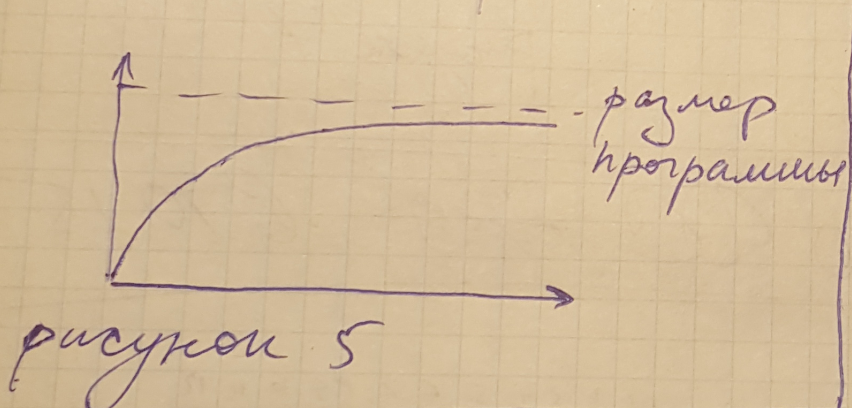 размер
программы
рисунок 5